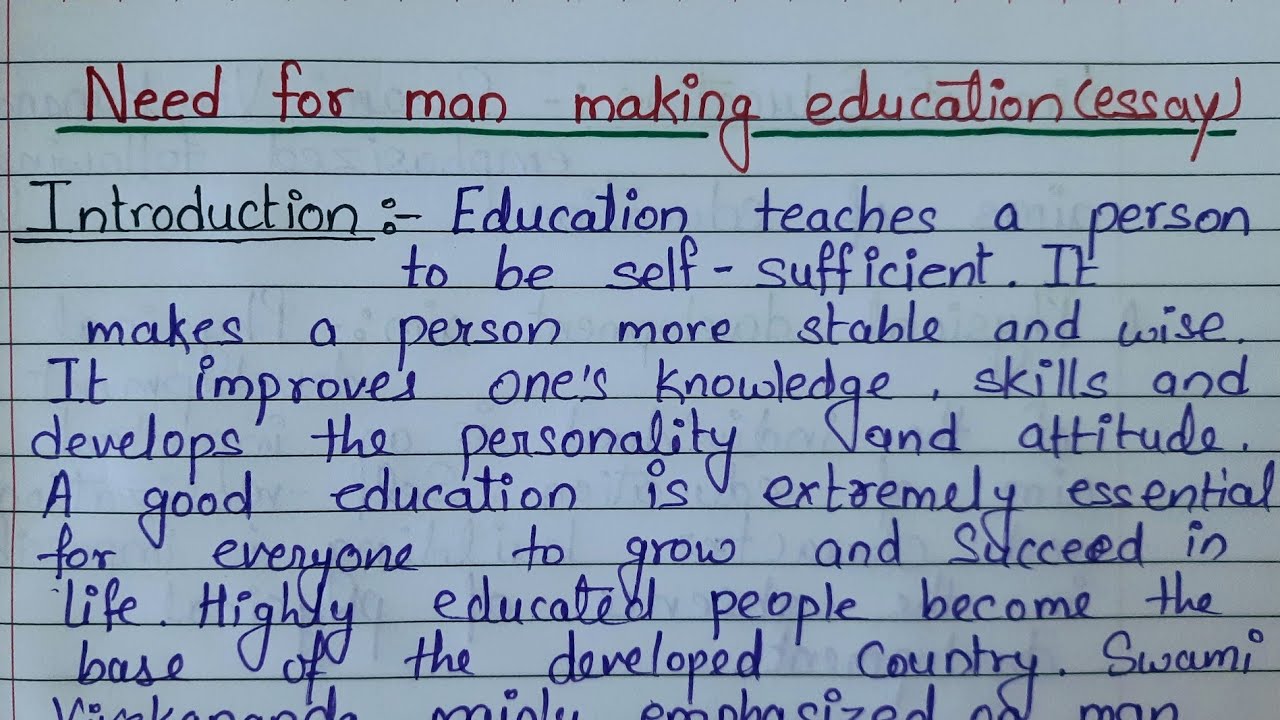 Need for man making education(essay)
Introduction :- Education teaches a person
to be self-sufficient. It
makes a person more stable and wise.
It improves one's knowledge, skills and
develops the personality and attitude.
A good education is extremely essential
for everyone to grow and succeed in
life. Highly educated people become the
base of the developed country. Swami
emphasized man